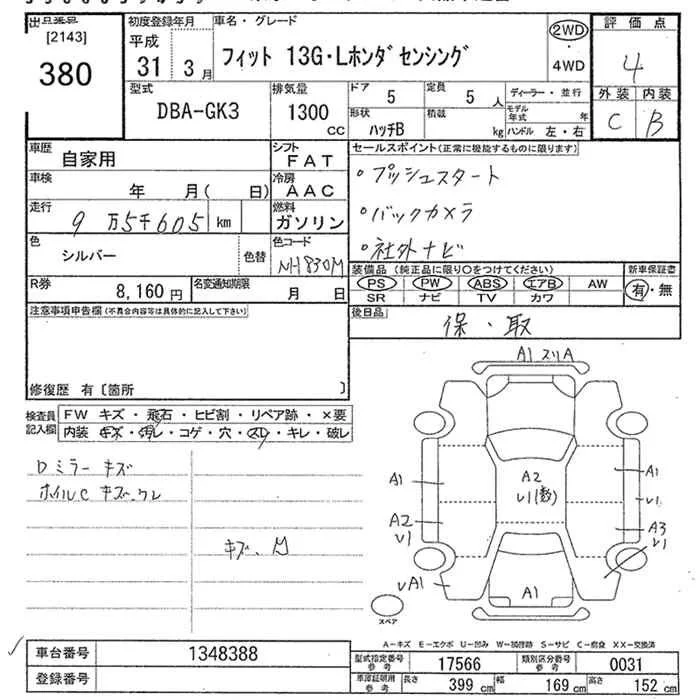 出品番号
[2143]
380
初度登録年月
平成
31 3月
車名・グレード
フィット 13G・Lホンダセンシング
2WD
・
4WD
評価点
4
外装 内装
C B
型式
DBA-GK3
排気量
1300
CC
ドア
5
定員
5 人
形状
ハッチB
積載
kg
ディーラー・並行
モデル年式 年
ハンドル 左・右
車歴
自家用
シフト
FAT
車検
年 月( 日)
冷房
AAC
走行
9万5千605 km
燃料
ガソリン
色
シルバー
色替
色コード
NH830M
R券
8,160 円
名変通知期限
月 日
セールスポイント(正常に機能するものに限ります)
・プッシュスタート
・バックカメラ
・社外ナビ
装備品 (純正品に限り○をつけてください)
PS PW ABS エアB AW
SR ナビ TV カワ
新車保証書
有・無
後日品
保・取
注意事項申告欄(不具合内容等は具体的に記入して下さい)
修復歴 有〔箇所 〕
検査員
記入欄
FW キズ・飛石・ヒビ割・リペア跡・×要
内装 キズ・汚レ・コゲ・穴・スレ・キレ・破レ
Dミラーキズ
ホイルC キズ、クレ
キズ、凹
A1 スリA
A1
A2
V1
VA1
A2
V1(数)
A1
A1
V1
A3
V1
スペア
A−キズ E−エクボ U−凹み W−補修跡 S−サビ C−腐食 XX−交換済
車台番号
1348388
登録番号
型式指定番号
参考
17566
類別区分番号
参考
0031
車庫証明用
参考
長さ
399 cm
幅
169 cm
高さ
152 cm